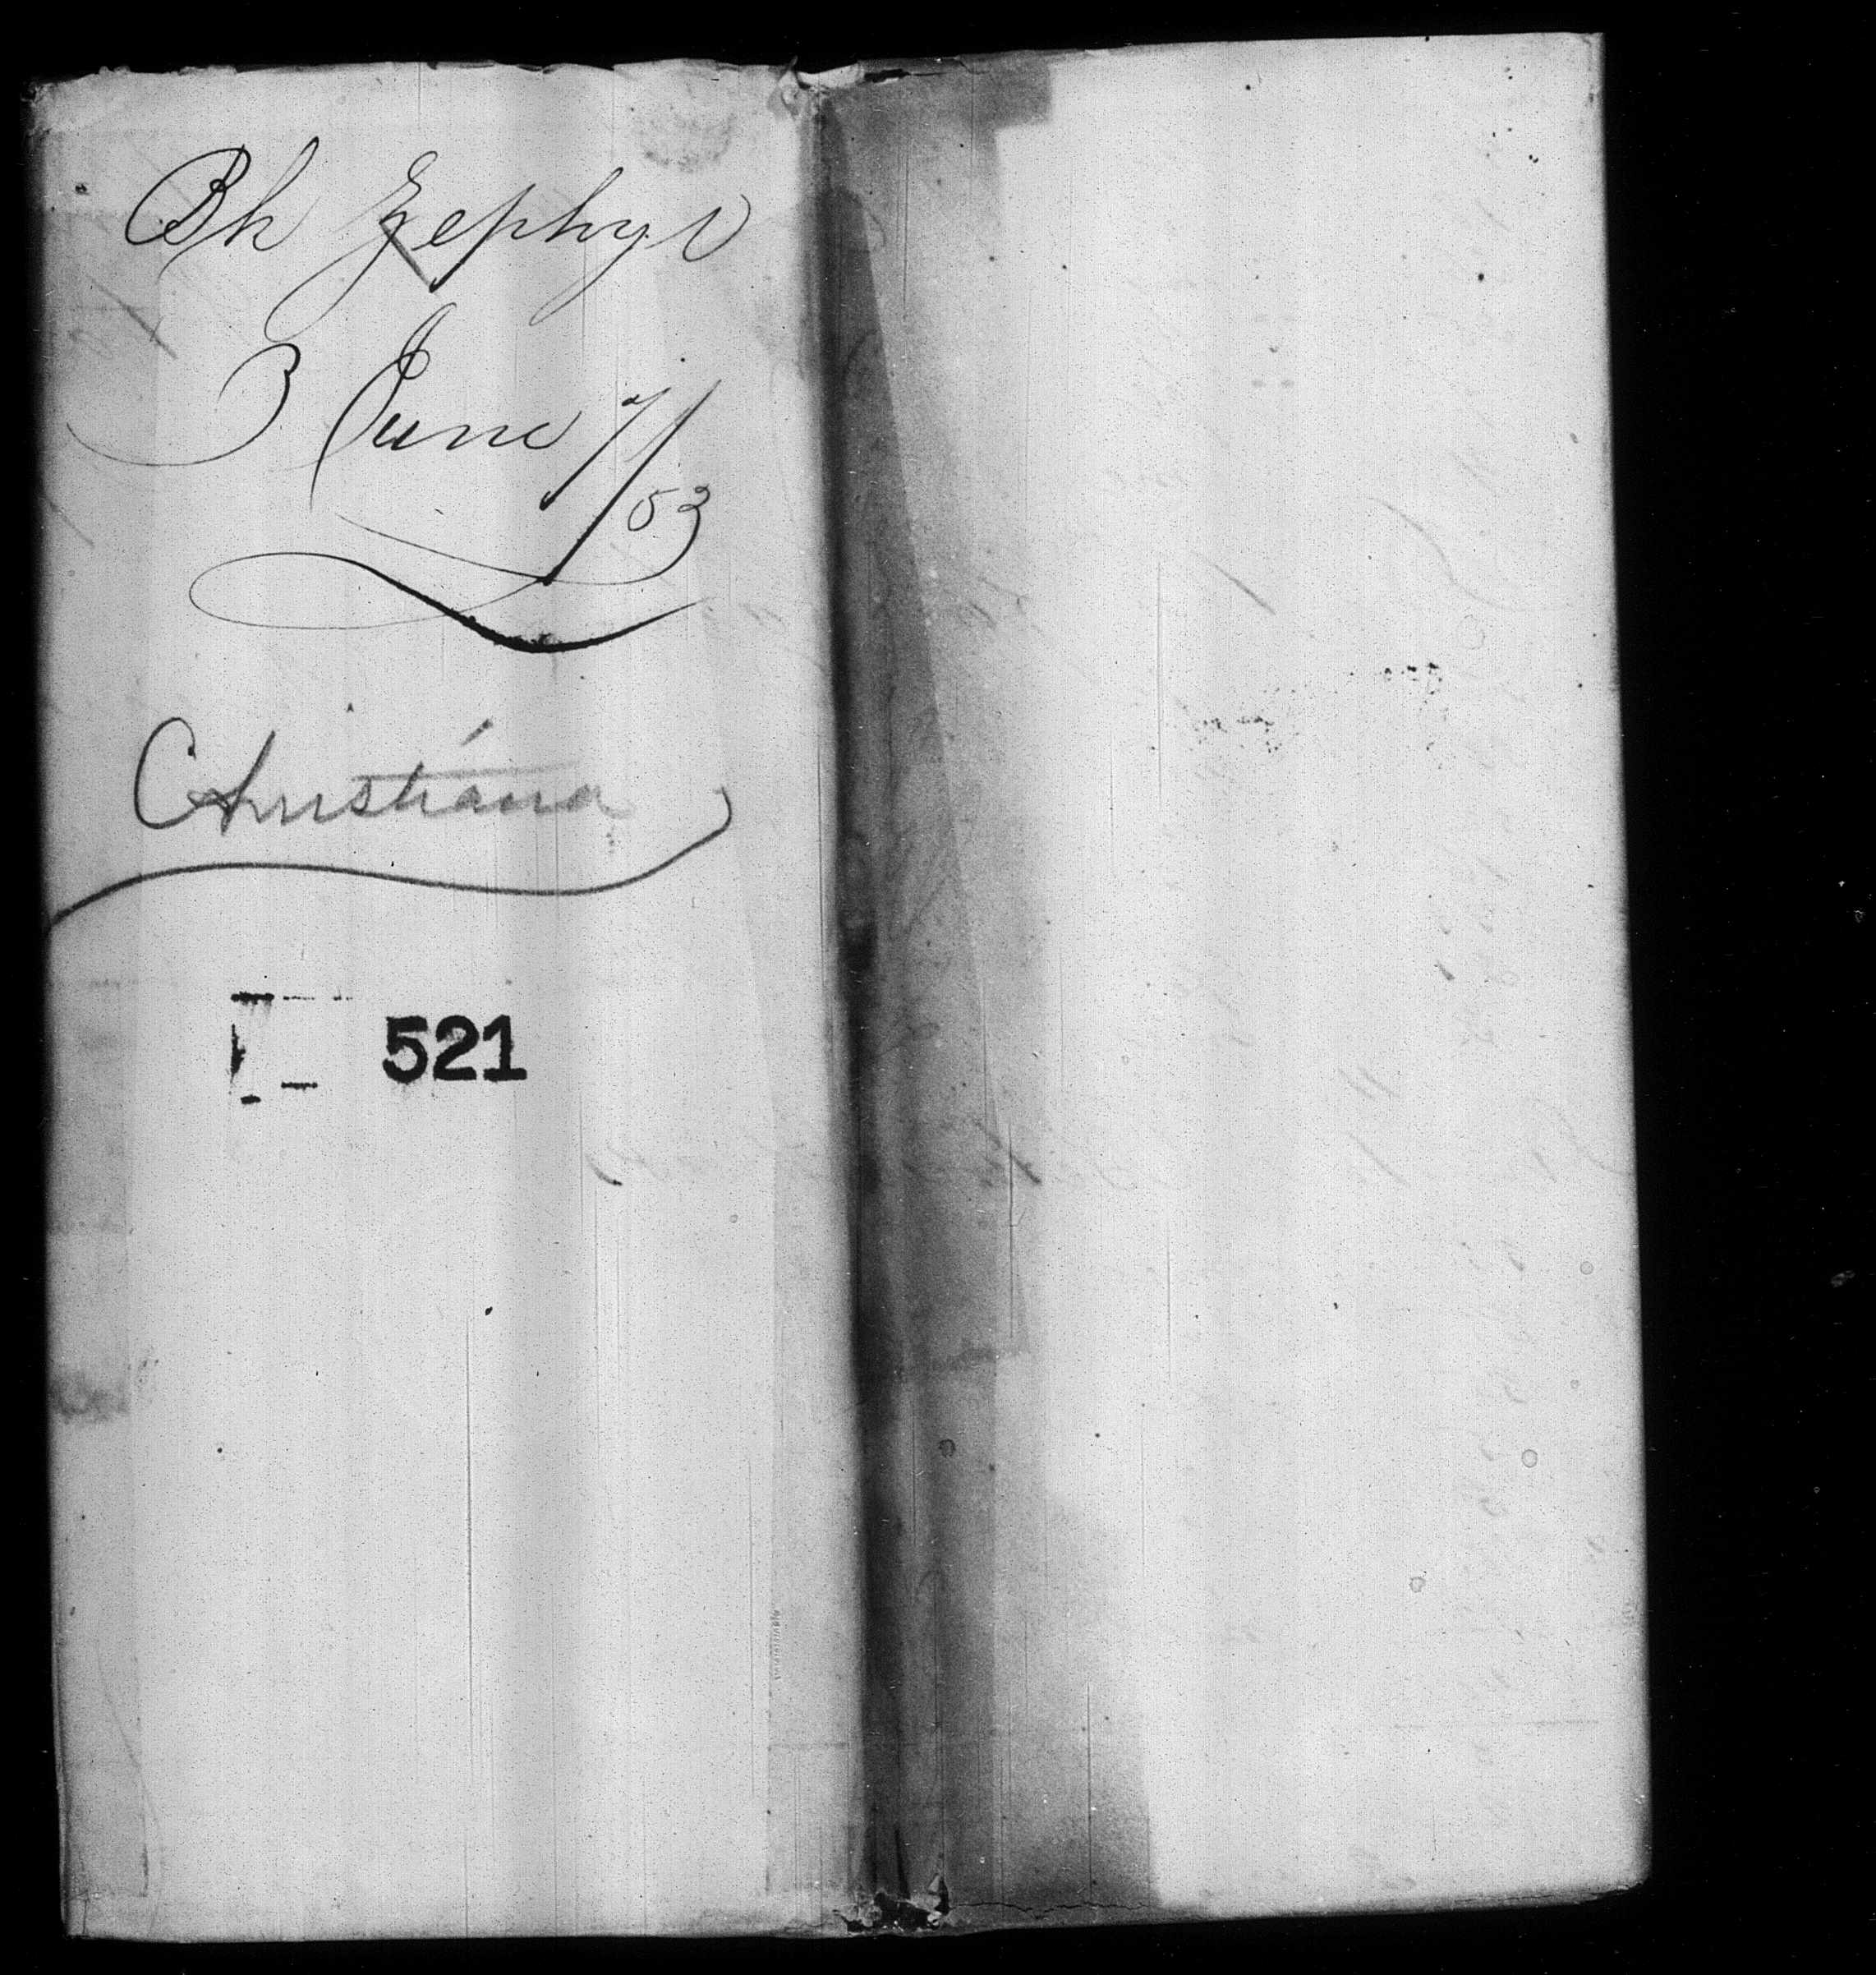 Bk Zephyr
3 June 7/53
Christiana
521